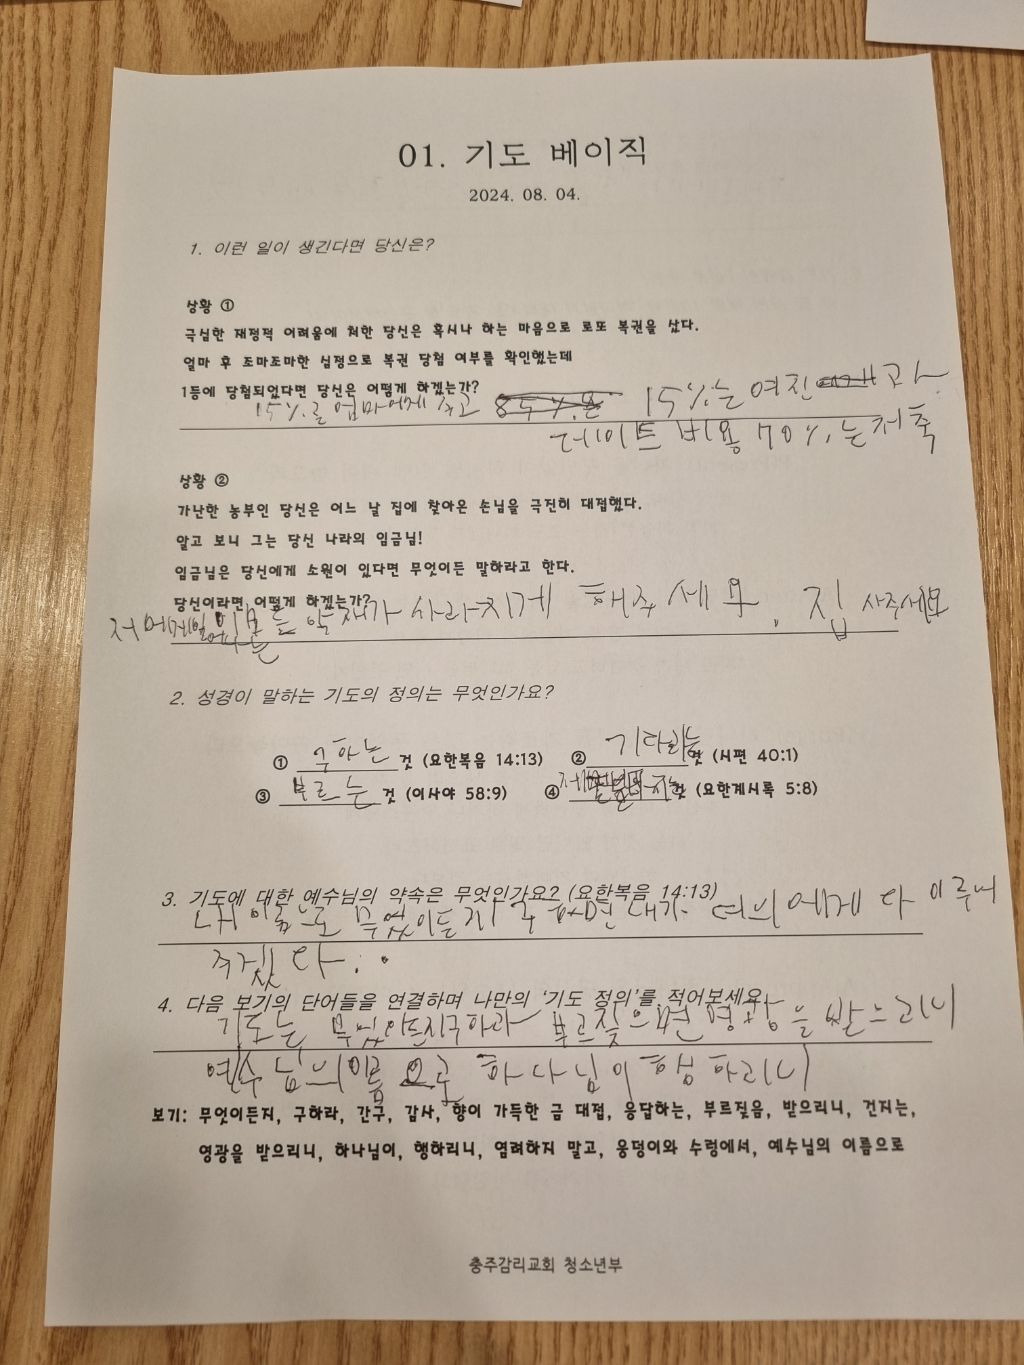 01. 기도 베이직
2024. 08. 04.
1. 이런 일이 생긴다면 당신은?
상황 ①
극심한 재정적 어려움에 처한 당신은 혹시나 하는 마음으로 로또 복권을 샀다.
얼마 후 조마조마한 심정으로 복권 당첨 여부를 확인했는데
1등에 당첨되었다면 당신은 어떻게 하겠는가?
15%를 엄마에게 주고 15%는 여친과
데이트 비용 70%는 저축
상황 ②
가난한 농부인 당신은 어느 날 집에 찾아온 손님을 극진히 대접했다.
알고 보니 그는 당신 나라의 임금님!
임금님은 당신에게 소원이 있다면 무엇이든 말하라고 한다.
당신이라면 어떻게 하겠는가?
사라지게 해주세요. 집 사주세요
2. 성경이 말하는 기도의 정의는 무엇인가요?
① 구하는 것 (요한복음 14:13) ② 기다리는 것 (시편 40:1)
③ 부르는 것 (이사야 58:9) ④ 것 (요한계시록 5:8)
3. 기도에 대한 예수님의 약속은 무엇인가요? (요한복음 14:13)
내 이름으로 무엇이든지 구하면 내가 너희에게 다 이루어
주겠다.
4. 다음 보기의 단어들을 연결하며 나만의 '기도 정의'를 적어보세요
기도는 무엇이든지구하라 부르짖으면 영광을 받으리니
예수님의이름으로 하나님이 행하리니
보기: 무엇이든지, 구하라, 간구, 감사, 향이 가득한 금 대접, 응답하는, 부르짖음, 받으리니, 건지는,
영광을 받으리니, 하나님이, 행하리니, 염려하지 말고, 웅덩이와 수렁에서, 예수님의 이름으로
충주감리교회 청소년부